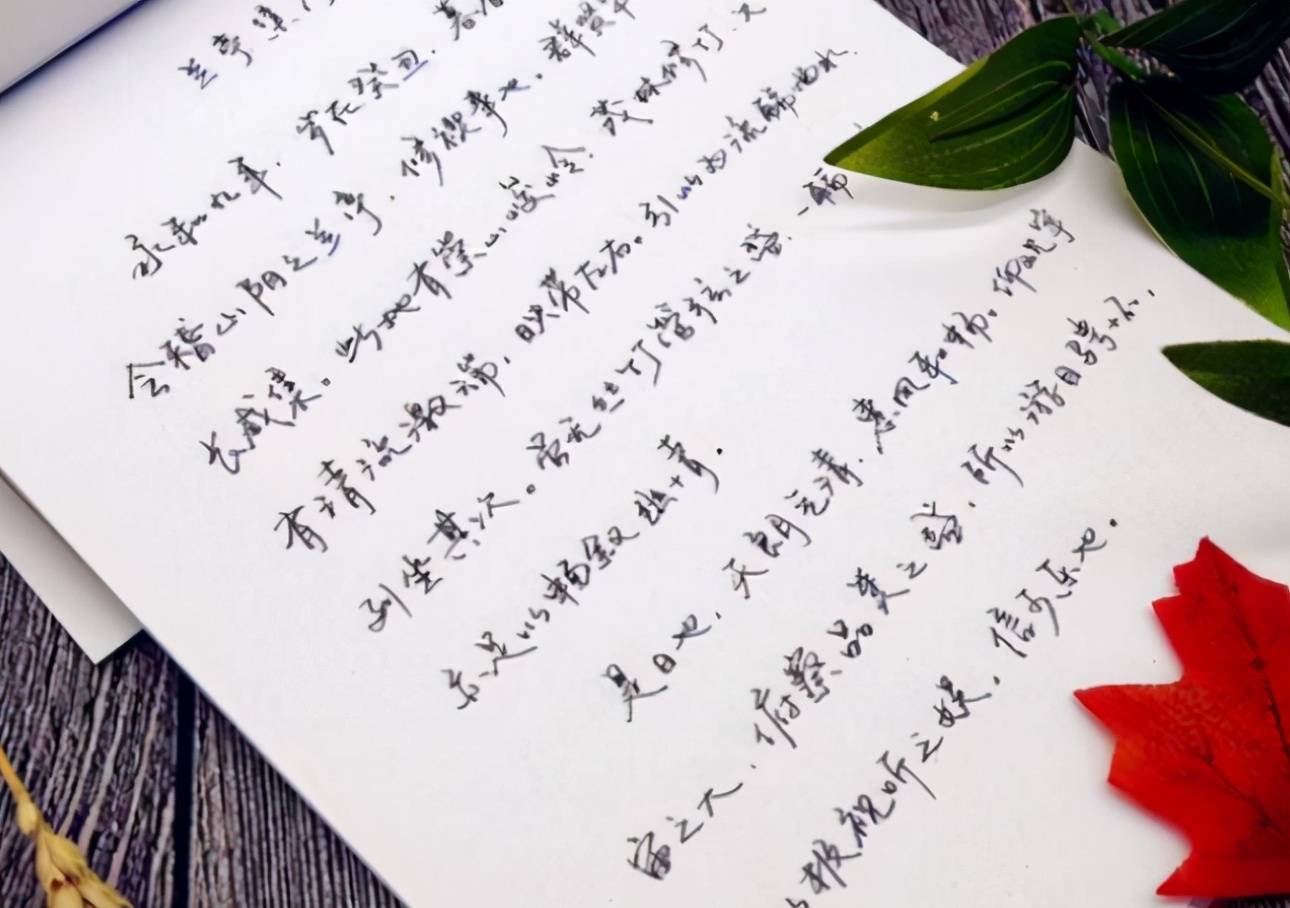 兰亭集
永和九年，岁在癸丑，暮春
会稽山阴之兰亭，修禊事也。群贤
长咸集。此地有崇山峻岭，茂林修竹，又
有清流激湍，映带左右。引以为流觞曲水，
列坐其次。虽无丝竹管弦之盛，一觞
亦足以畅叙幽情。
是日也，天朗气清，惠风和畅。仰观宇
宙之大，俯察品类之盛，所以游目骋怀，
以极视听之娱，信可乐也。